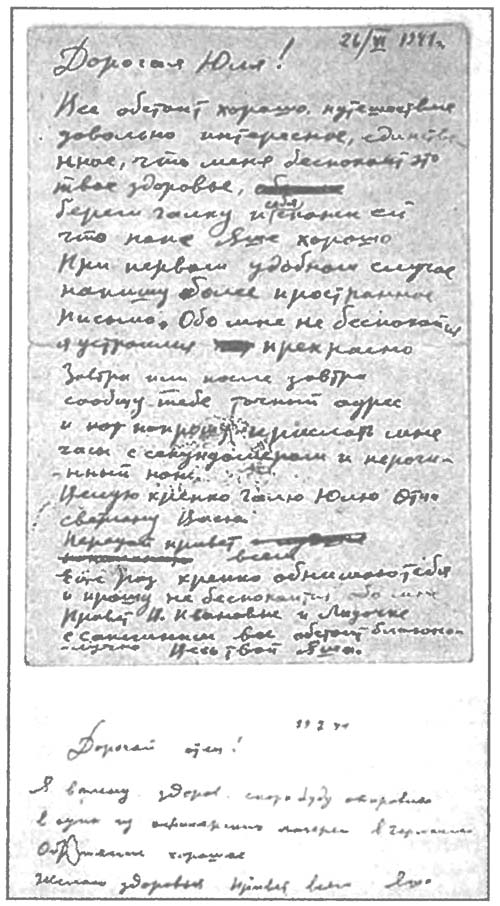 26/VI 1941г.
Дорогая Юля!
Все обстоит хорошо. путешествие
довольно интересное, единстве-
нное, что меня беспокоит это
твое здоровье,
береги Галку и себя скажи ей
что папе Яше хорошо
При первом удобном случае
напишу более пространное
письмо. Обо мне не беспокойся
я устроился прекрасно
Завтра или после завтра
сообщу тебе точный адрес
и попрошу прислать мне
часы с секундомером и перочи-
-нный нож.
Целую крепко Галю Юлю Отца
Светлану Васю.
Передай привет всем
Еще раз крепко обнимаю тебя
и прошу не беспокоится обо мне
Привет В. Ивановне и Лидочке
с Сапегиным все обстоит благопо-
-лучно Весь твой Яша.
Дорогой отец!
Я в плену здоров скоро буду отправлен
в один из офицерских лагерей в Германию
Обращение хорошее
Желаю здоровья Привет всем Яша